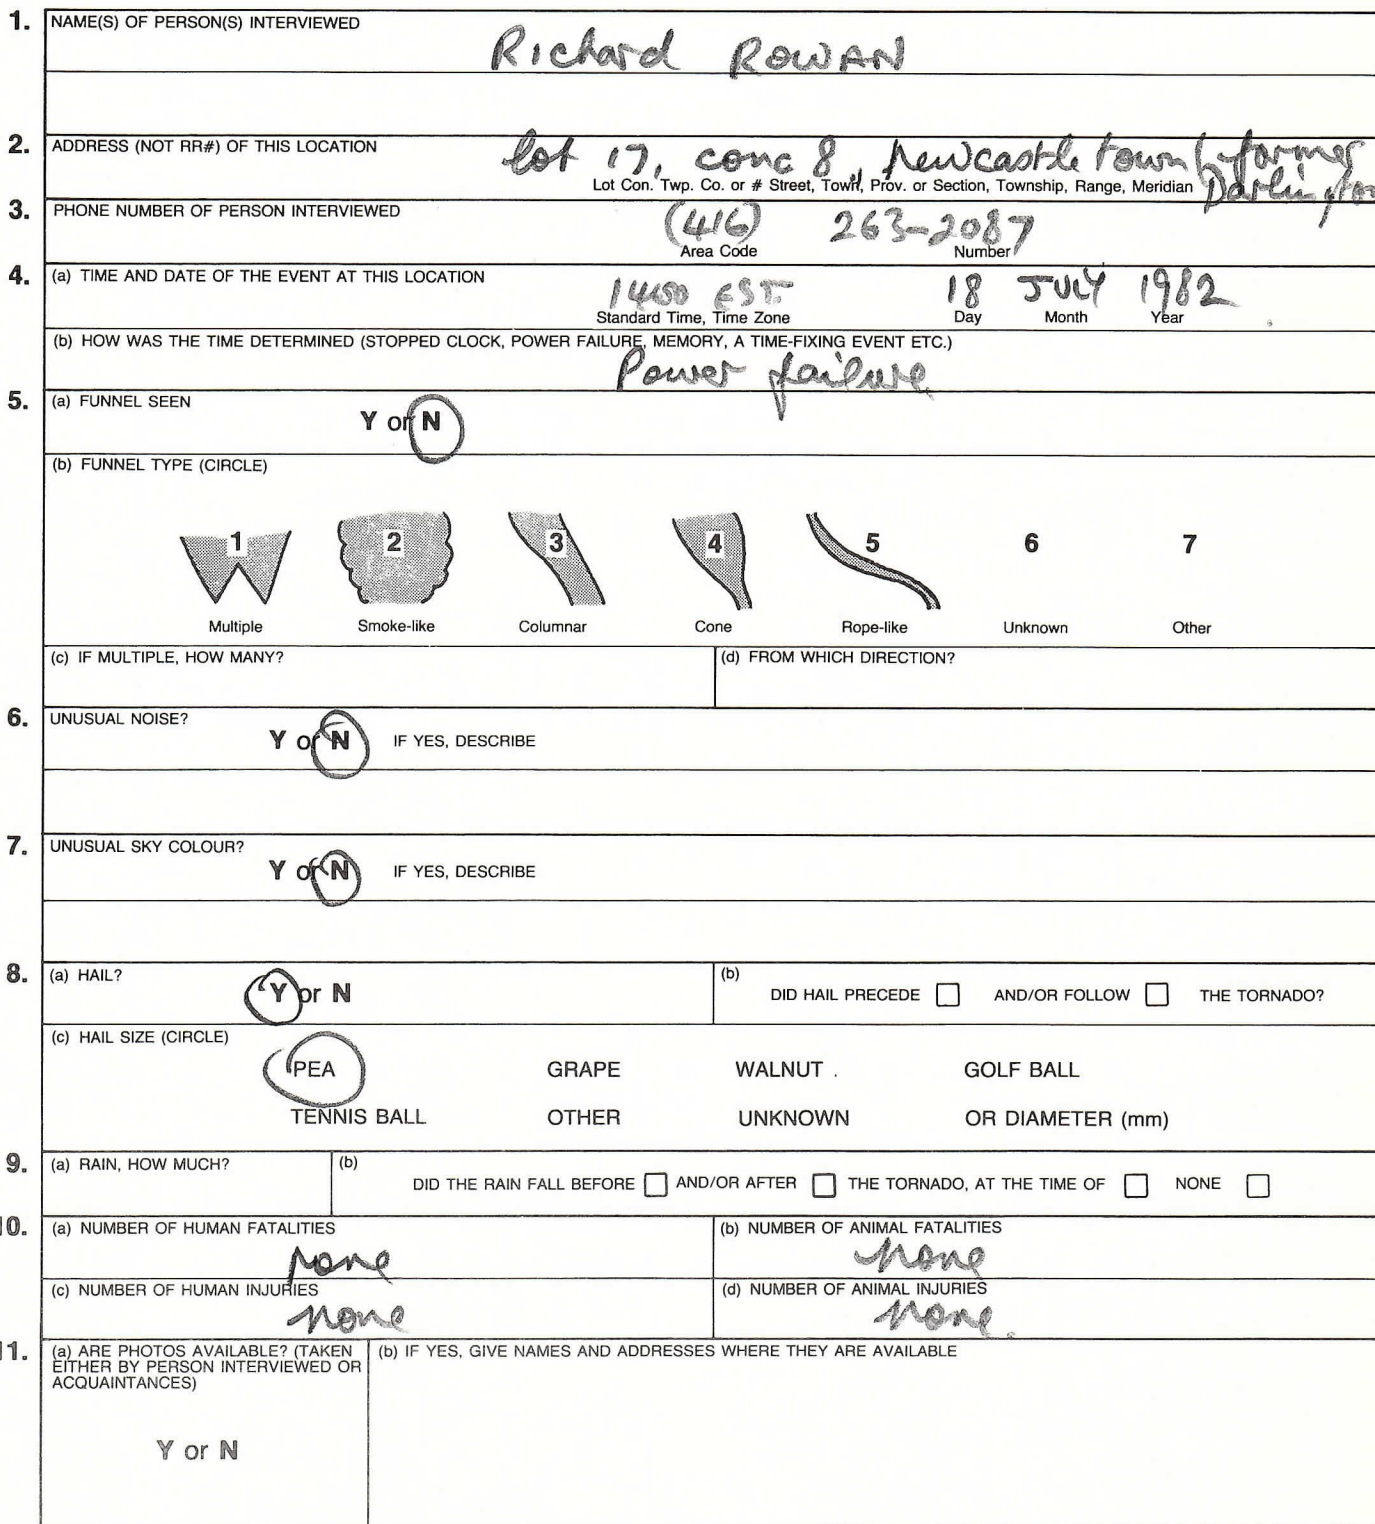 1. NAME(S) OF PERSON(S) INTERVIEWED
Richard ROWAN
2. ADDRESS (NOT RR#) OF THIS LOCATION
Lot 17, conc 8, Newcastle town (former
Darlington
Lot Con. Twp. Co. or # Street, Town, Prov. or Section, Township, Range, Meridian
3. PHONE NUMBER OF PERSON INTERVIEWED
(416) 263-2087
Area Code Number
4. (a) TIME AND DATE OF THE EVENT AT THIS LOCATION
EST. 18 JULY 1982
Standard Time, Time Zone Day Month Year
(b) HOW WAS THE TIME DETERMINED (STOPPED CLOCK, POWER FAILURE, MEMORY, A TIME-FIXING EVENT ETC.)
Power failure
5. (a) FUNNEL SEEN
Y or N
(b) FUNNEL TYPE (CIRCLE)
1 2 3 4 5 6 7
Multiple Smoke-like Columnar Cone Rope-like Unknown Other
(c) IF MULTIPLE, HOW MANY? (d) FROM WHICH DIRECTION?
6. UNUSUAL NOISE?
Y or N IF YES, DESCRIBE
7. UNUSUAL SKY COLOUR?
Y or N IF YES, DESCRIBE
8. (a) HAIL? (b)
Y or N DID HAIL PRECEDE AND/OR FOLLOW THE TORNADO?
(c) HAIL SIZE (CIRCLE)
PEA GRAPE WALNUT . GOLF BALL
TENNIS BALL OTHER UNKNOWN OR DIAMETER (mm)
9. (a) RAIN, HOW MUCH? (b)
DID THE RAIN FALL BEFORE AND/OR AFTER THE TORNADO, AT THE TIME OF NONE
10. (a) NUMBER OF HUMAN FATALITIES (b) NUMBER OF ANIMAL FATALITIES
none none
(c) NUMBER OF HUMAN INJURIES (d) NUMBER OF ANIMAL INJURIES
none none.
11. (a) ARE PHOTOS AVAILABLE? (TAKEN (b) IF YES, GIVE NAMES AND ADDRESSES WHERE THEY ARE AVAILABLE
EITHER BY PERSON INTERVIEWED OR
ACQUAINTANCES)
Y or N